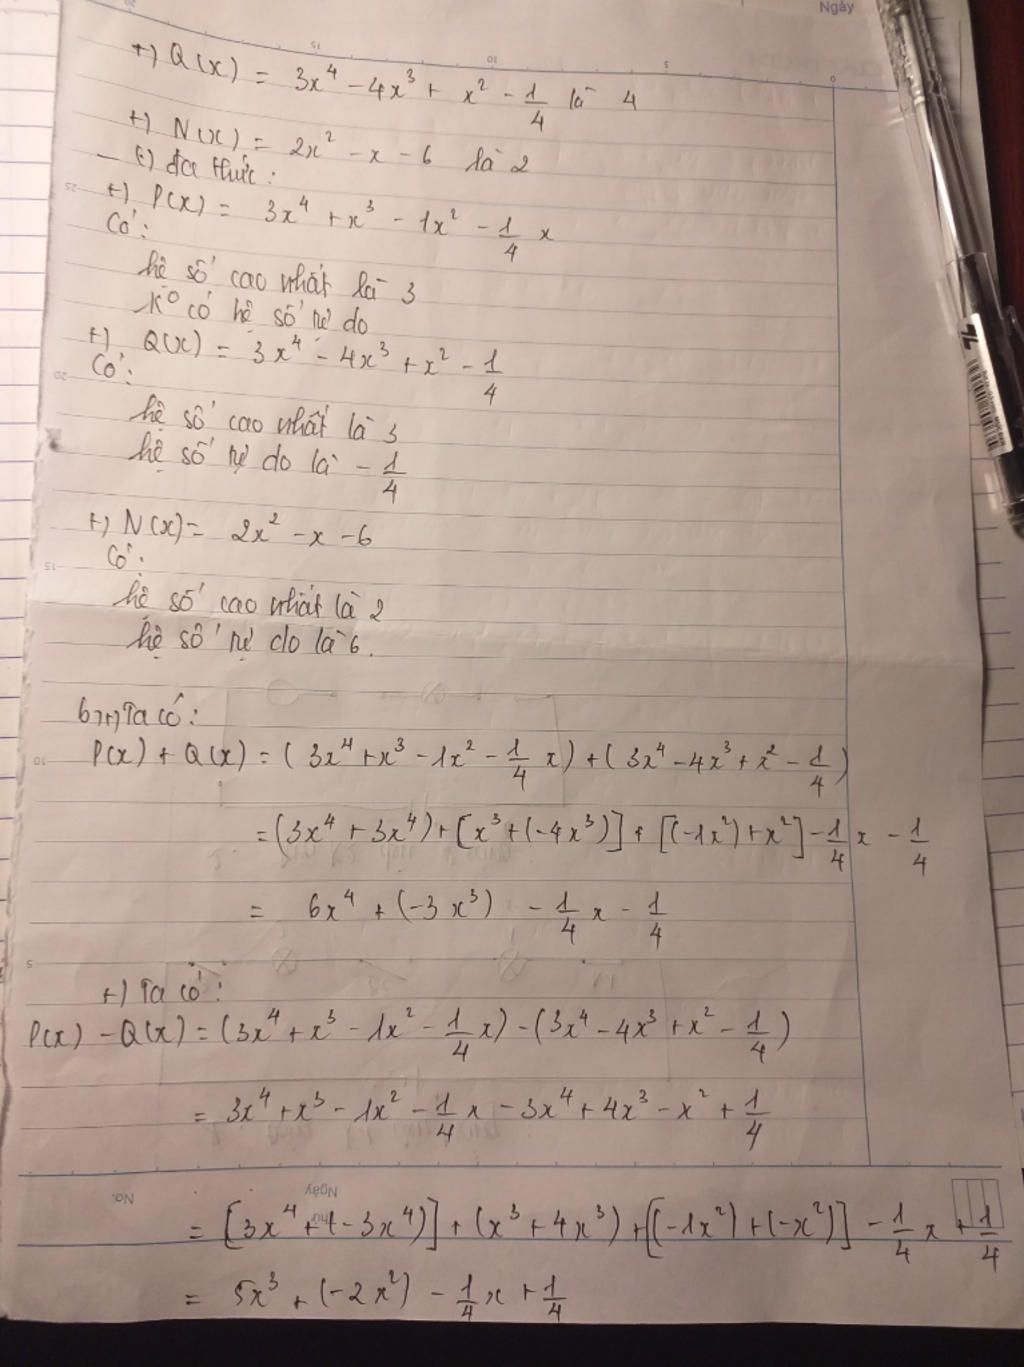 Ngày
+) Q(x) = 3x⁴ - 4x³ + x² - 1/4 là 4
+) N(x) = 2x² - x - 6 là 2
- t) đa thức:
+) P(x) = 3x⁴ + x³ - 1x² - 1/4 x
Có:
hệ số cao nhất là 3
K° có hệ số tự do
+) Q(x) = 3x⁴ - 4x³ + x² - 1/4
Có:
hệ số cao nhất là 3
hệ số tự do là - 1/4
+) N(x) = 2x² - x - 6
Có:
hệ số cao nhất là 2
hệ số tự do là 6.
b) +) Ta có:
P(x) + Q(x) = ( 3x⁴ + x³ - 1x² - 1/4 x) + ( 3x⁴ - 4x³ + x² - 1/4 )
= (3x⁴ + 3x⁴) + [x³ + (-4x³)] + [(-1x²) + x²] - 1/4 x - 1/4
= 6x⁴ + (-3x³) - 1/4 x - 1/4
+) Ta có:
P(x) - Q(x) = (3x⁴ + x³ - 1x² - 1/4 x) - (3x⁴ - 4x³ + x² - 1/4)
= 3x⁴ + x³ - 1x² - 1/4 x - 3x⁴ + 4x³ - x² + 1/4
No.
Ngày
= [3x⁴ + (-3x⁴)] + (x³ + 4x³) + [(-1x²) + (-x²)] - 1/4 x + 1/4
= 5x³ + (-2x²) - 1/4 x + 1/4